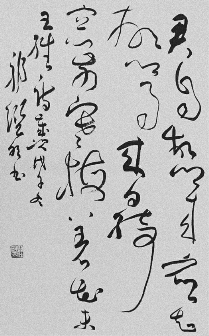 君自故乡来应知
故乡事来日绮
窗前寒梅着花未
王维诗岁次戊子冬
书